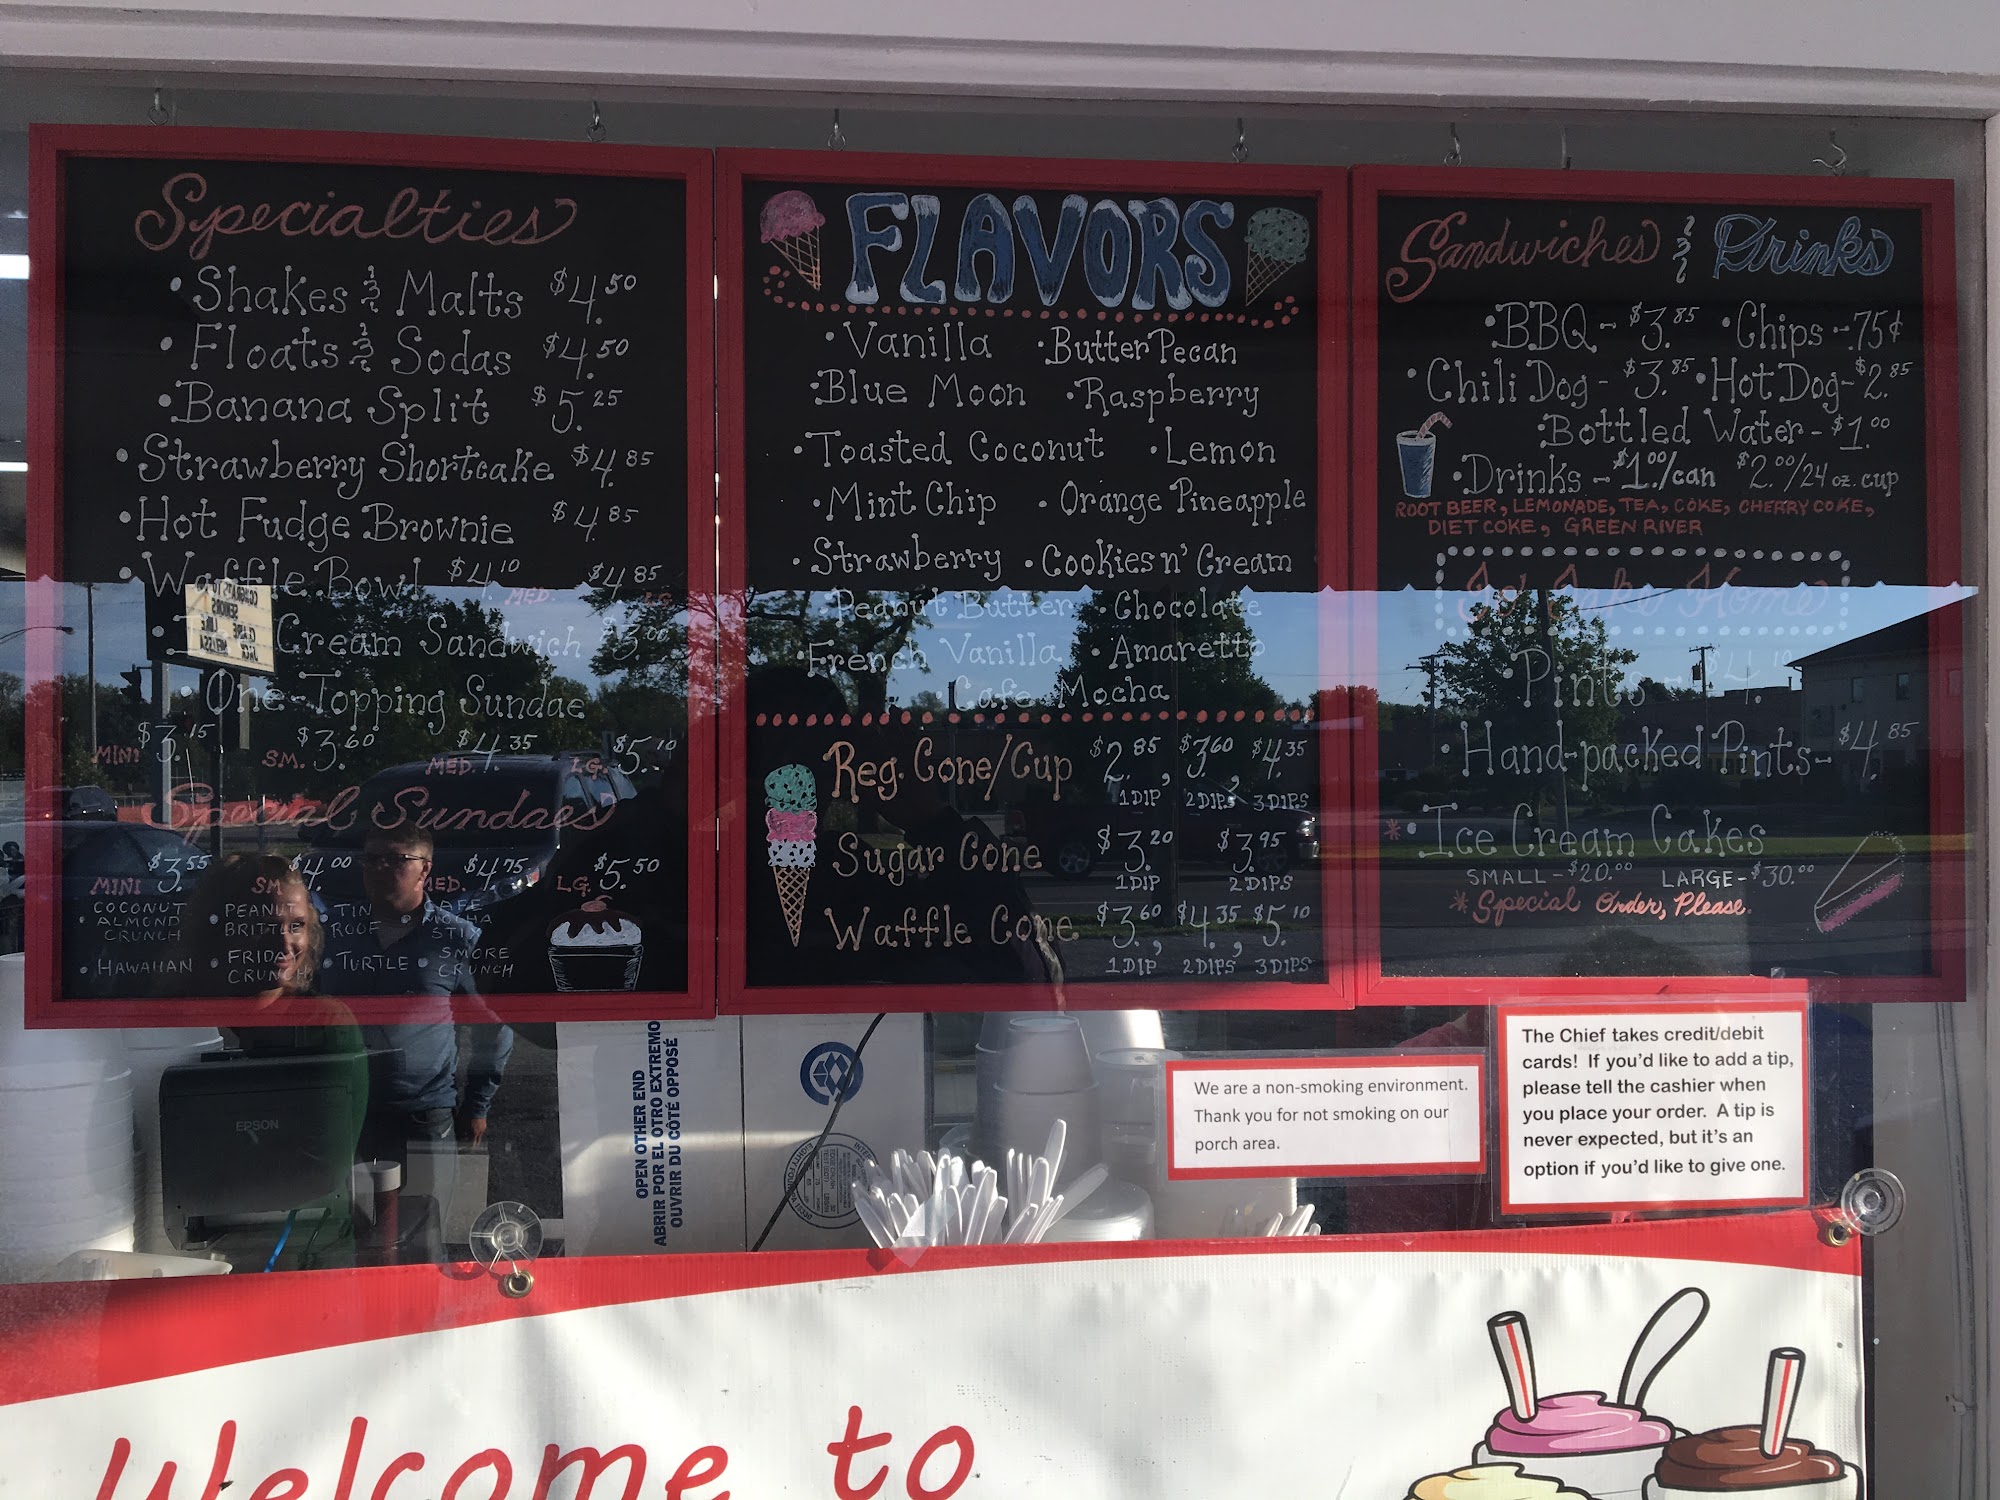 Specialties
• Shakes & Malts $4.50
• Floats & Sodas $4.50
• Banana Split $5.25
• Strawberry Shortcake $4.85
• Hot Fudge Brownie $4.85
• Waffle Bowl $4.10 MED. $4.85 LG.
Cream Sandwich $3.00
• One-Topping Sundae
MINI $3.15 SM. $3.60 MED. $4.35 LG. $5.10
Special Sundaes
MINI $3.55 SM $4.00 MED. $4.75 LG. $5.50
• COCONUT ALMOND CRUNCH • PEANUT BRITTLE • TIN ROOF • CAFE MOCHA STIX
• HAWAIIAN • FRIDAY CRUNCH • TURTLE • SMORE CRUNCH
FLAVORS
• Vanilla • Butter Pecan
• Blue Moon • Raspberry
• Toasted Coconut • Lemon
• Mint Chip • Orange Pineapple
• Strawberry • Cookies n' Cream
• Peanut Butter • Chocolate
• French Vanilla • Amaretto
• Cafe Mocha
Reg. Cone/Cup $2.85, $3.60, $4.35
1 DIP 2 DIPS 3 DIPS
Sugar Cone $3.20 $3.95
1 DIP 2 DIPS
Waffle Cone $3.60, $4.35, $5.10
1 DIP 2 DIPS 3 DIPS
Sandwiches & Drinks
• BBQ - $3.85 • Chips - .75¢
• Chili Dog - $3.85 • Hot Dog - $2.85
• Bottled Water - $1.00
• Drinks - $1.00/can $2.00/24 oz. cup
ROOT BEER, LEMONADE, TEA, COKE, CHERRY COKE,
DIET COKE, GREEN RIVER
To Take Home
• Pints - $4.10
• Hand-packed Pints - $4.85
* • Ice Cream Cakes
SMALL - $20.00 LARGE - $30.00
* Special Order, Please.
The Chief takes credit/debit
cards! If you'd like to add a tip,
please tell the cashier when
you place your order. A tip is
never expected, but it's an
option if you'd like to give one.
We are a non-smoking environment.
Thank you for not smoking on our
porch area.
EPSON
OPEN OTHER END
ABRIR POR EL OTRO EXTREMO
OUVRIR DU CÔTÉ OPPOSÉ
Welcome to